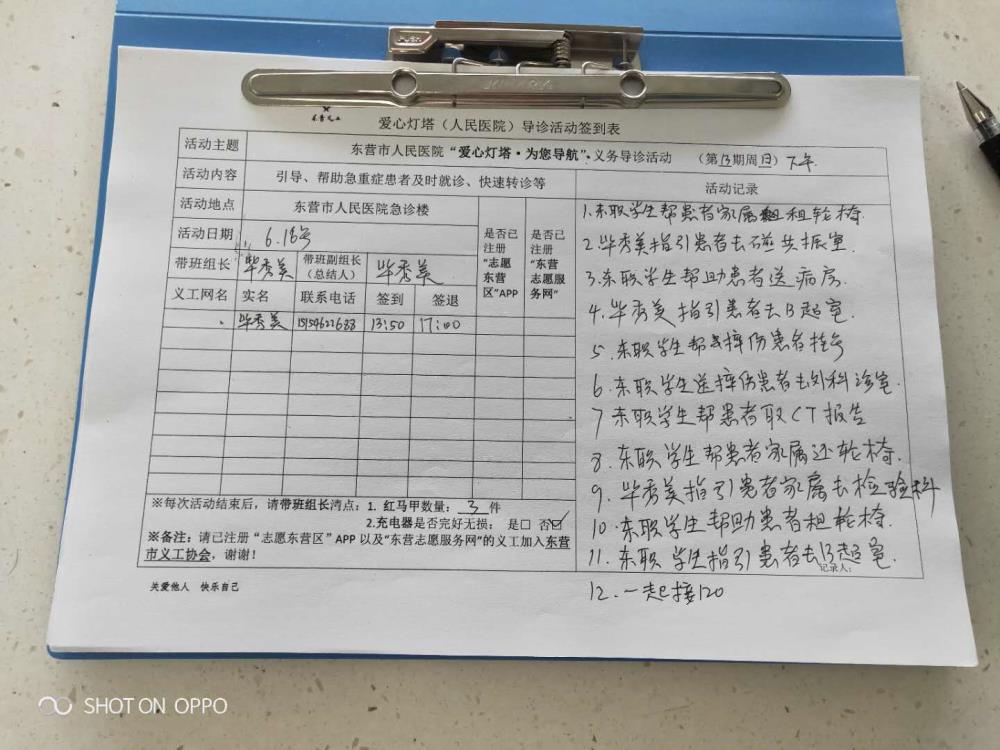 东营义工
爱心灯塔（人民医院）导诊活动签到表
活动主题 东营市人民医院“爱心灯塔·为您导航”·义务导诊活动 （第13期周日）下午
活动内容 引导、帮助急重症患者及时就诊、快速转诊等 活动记录
活动地点 东营市人民医院急诊楼
活动日期 6.16号
是否已注册“志愿东营区”APP
是否已注册“东营志愿服务网”
带班组长 毕秀美 带班副组长（总结人） 毕秀美
义工网名 实名 联系电话 签到 签退
毕秀美 13:50 17:00
1.东职学生帮患者家属租轮椅
2.毕秀美指引患者去磁共振室
3.东职学生帮助患者送病房
4.毕秀美指引患者去B超室
5.东职学生帮摔伤患者挂号
6.东职学生送摔伤患者去外科诊室
7东职学生帮患者取CT报告
8.东职学生帮患者家属还轮椅
9.毕秀美指引患者家属去检验科
10.东职学生帮助患者租轮椅
11.东职学生指引患者去B超室
记录人：
12.一起接120
※每次活动结束后，请带班组长清点：1. 红马甲数量：3件
2.充电器是否完好无损： 是□ 否☑
※备注：请已注册“志愿东营区”APP以及“东营志愿服务网”的义工加入东营
市义工协会，谢谢！
关爱他人 快乐自己
SHOT ON OPPO